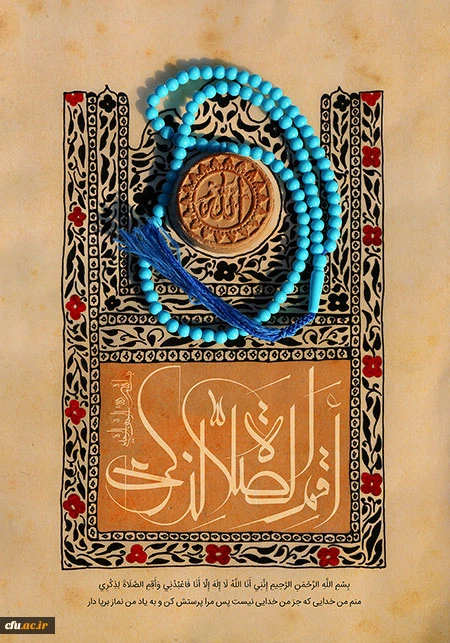 أقم الصلاة لذكری
بِسْمِ اللَّهِ الرَّحْمَنِ الرَّحِیمِ إِنَّنِي أَنَا اللَّهُ لَا إِلَهَ إِلَّا أَنَا فَاعْبُدْنِي وَأَقِمِ الصَّلَاةَ لِذِكْرِي
منم من خدایی که جز من خدایی نیست پس مرا پرستش کن و به یاد من نماز برپا دار
cfu.ac.ir